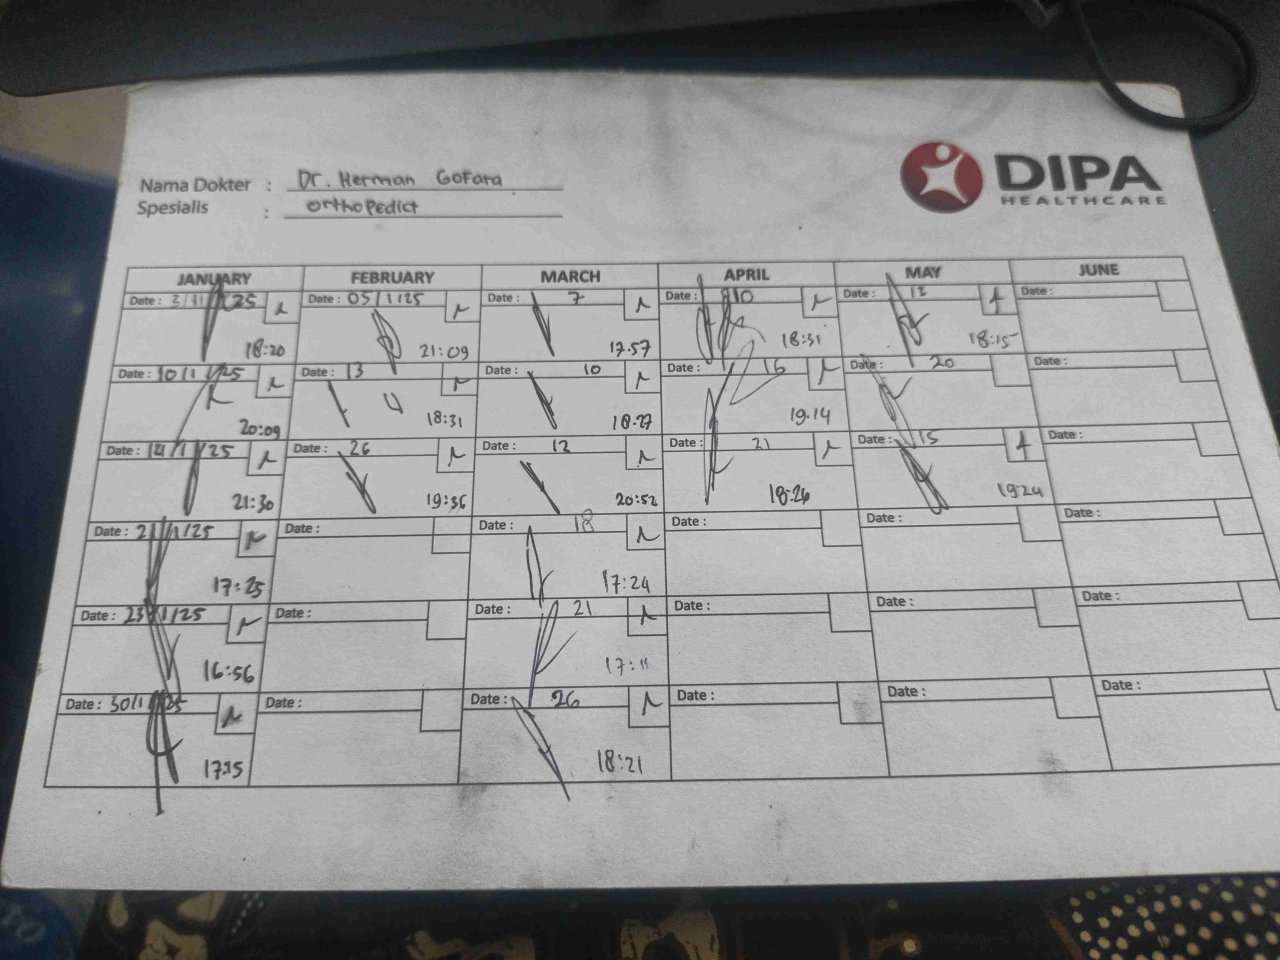 DIPA
HEALTHCARE
Nama Dokter : Dr. Herman Gofara
Spesialis : Orthopedict
JANUARY FEBRUARY MARCH APRIL MAY JUNE
Date : 3/1/25 Date : 05/1/25 Date : 7 Date : 10 Date : 13 Date :
18:20 21:09 17.57 18:31 18:15
Date : 10/1/25 Date : 13 Date : 10 Date : 16 Date : 20 Date :
20:09 18:31 18.27 19.14
Date : 14/1/25 Date : 26 Date : 12 Date : 21 Date : 15 Date :
21:30 19:36 20:52 18.26 19.24
Date : 21/1/25 Date : Date : 18 Date : Date : Date :
17:25 17:24
Date : 23/1/25 Date : Date : 21 Date : Date : Date :
16:56 17:11
Date : 30/1/25 Date : Date : 26 Date : Date : Date :
17:15 18:21